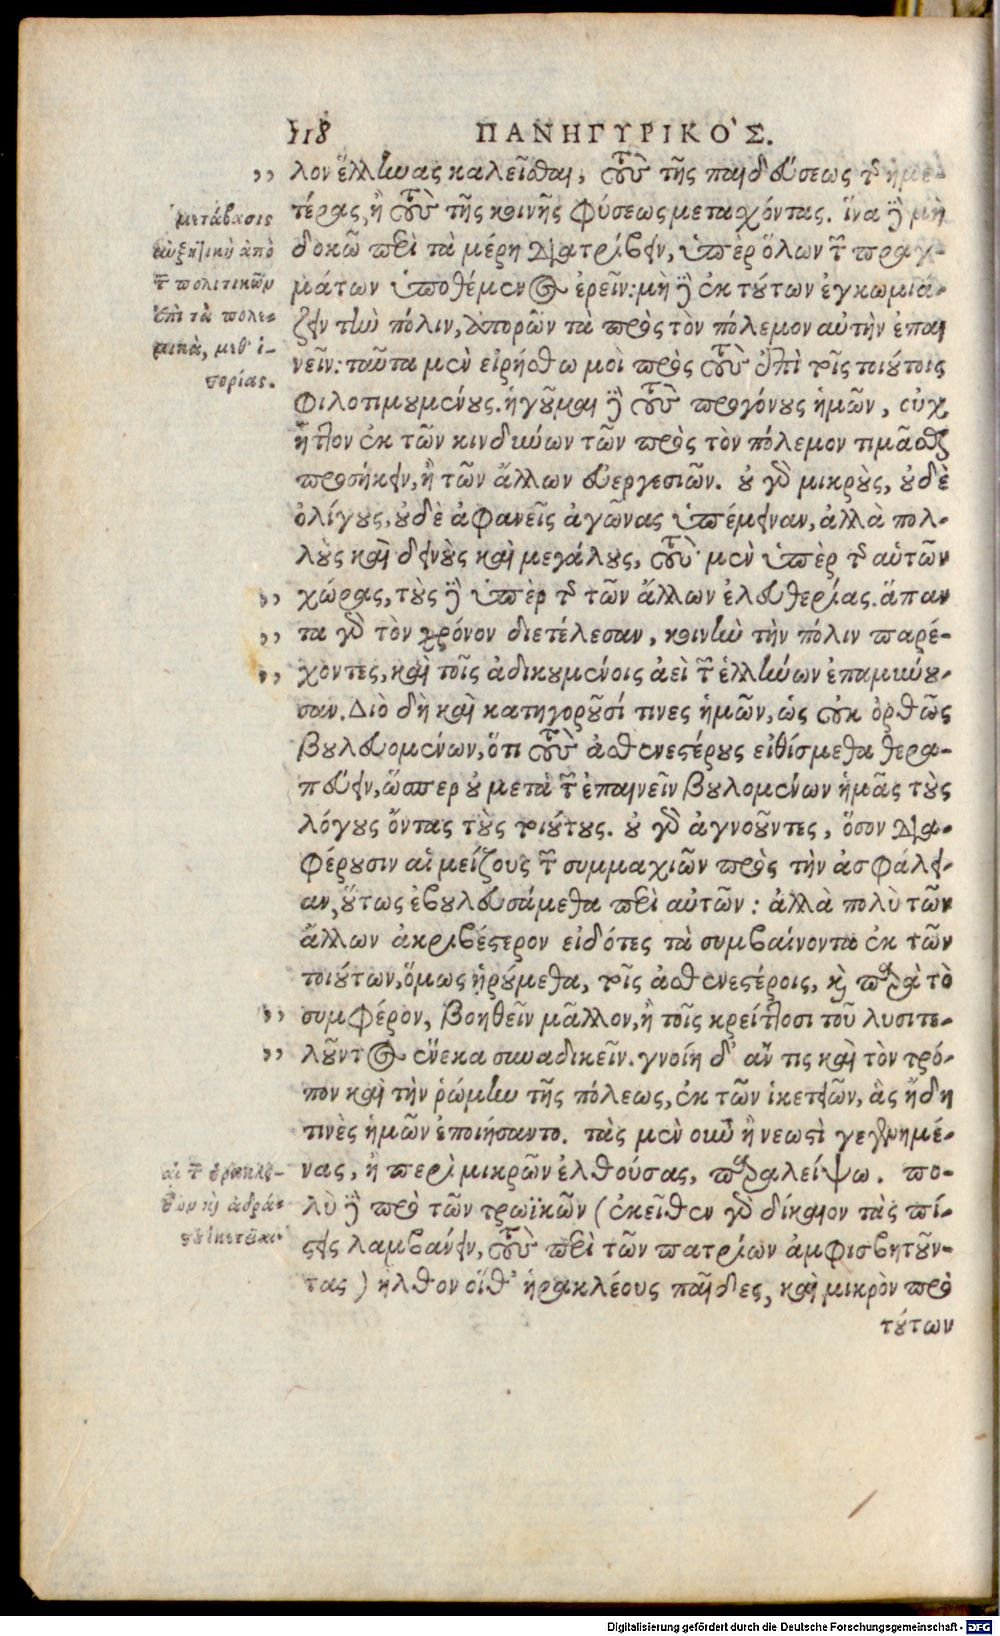 118 ΠΑΝΗΓΥΡΙΚΟ'Σ.
,, λον ἕλληνας καλεῖσθαι, τοὺς τῆς παιδεύσεως τῆς ἡμε-
τέρας, ἢ τοὺς τῆς κοινῆς φύσεως μεταχόντας. ἵνα δὲ μὴ
δοκῶ περὶ τὰ μέρη διατρίβειν, ὑπὲρ ὅλων τῶν πραγ-
μάτων ὑποθέμενος ἐρεῖν: μὴ δὲ ἐκ τούτων ἐγκωμιά-
ζειν τὴν πόλιν, ἀπορῶν τὰ πρὸς τὸν πόλεμον αὐτὴν ἐπαι
νεῖν: ταῦτα μὲν εἰρήσθω μοὶ πρὸς τοὺς ἐπὶ τοῖς τοιούτοις
φιλοτιμουμένους. ἡγοῦμαι δὲ τοὺς προγόνους ἡμῶν, οὐχ
ἧττον ἐκ τῶν κινδύνων τῶν πρὸς τὸν πόλεμον τιμᾶσθαι
προσήκειν, ἢ τῶν ἄλλων εὐεργεσιῶν. οὐ γὰρ μικροὺς, οὐδὲ
ὀλίγους, οὐδὲ ἀφανεῖς ἀγῶνας ὑπέμειναν, ἀλλὰ πολ-
λοὺς καὶ δεινοὺς καὶ μεγάλους, τοὺς μὲν ὑπὲρ τῆς αὑτῶν
,, χώρας, τοὺς δὲ ὑπὲρ τῆς τῶν ἄλλων ἐλευθερίας. ἅπαν
,, τα γὰρ τὸν χρόνον διετέλεσαν, κοινὴν τὴν πόλιν παρέ-
,, χοντες, καὶ τοῖς ἀδικουμένοις ἀεὶ τῶν ἑλλήνων ἐπαμύνου-
σαν. Διὸ δὴ καὶ κατηγοροῦσί τινες ἡμῶν, ὡς οὐκ ὀρθῶς
βουλευομένων, ὅτι τοὺς ἀσθενεστέρους εἰθίσμεθα θερα-
πεύειν, ὥσπερ οὐ μετὰ τῶν ἐπαινεῖν βουλομένων ἡμᾶς τοὺς
λόγους ὄντας τοὺς τοιούτους. οὐ γὰρ ἀγνοοῦντες, ὅσον δια-
φέρουσιν αἱ μείζους τῶν συμμαχιῶν πρὸς τὴν ἀσφάλει-
αν, οὕτως ἐβουλευσάμεθα περὶ αὐτῶν: ἀλλὰ πολὺ τῶν
ἄλλων ἀκριβέστερον εἰδότες τὰ συμβαίνοντα ἐκ τῶν
τοιούτων, ὅμως ᾑρούμεθα, τοῖς ἀσθενεστέροις, καὶ παρὰ τὸ
,, συμφέρον, βοηθεῖν μᾶλλον, ἢ τοῖς κρείττοσι τοῦ λυσιτε-
,, λοῦντος ἕνεκα συναδικεῖν. γνοίη δ' ἄν τις καὶ τὸν τρό-
πον καὶ τὴν ῥώμην τῆς πόλεως, ἐκ τῶν ἱκετειῶν, ἃς ἤδη
τινὲς ἡμῶν ἐποιήσαντο. τὰς μὲν οὖν ἢ νεωστὶ γεγενημέ-
νας, ἢ περὶ μικρῶν ἐλθούσας, παραλείψω. πο-
λὺ δὲ πρὸ τῶν τρωϊκῶν (ἐκεῖθεν γὰρ δίκαιον τὰς πί-
στεις λαμβάνειν, τοὺς περὶ τῶν πατρίων ἀμφισβητοῦν-
τας) ἦλθον οἵθ' ἡρακλέους παῖδες, καὶ μικρὸν πρὸ
τούτων
μετάβασις
αὐξητικὴ ἀπὸ
τῶν πολιτικῶν
ἐπὶ τὰ πολε-
μικὰ, μεθ' ἱ-
στορίας.
αἱ τῶν ἡρακλει-
δῶν καὶ ἀδρά-
στου ἱκετεῖαι
Digitalisierung gefördert durch die Deutsche Forschungsgemeinschaft - DFG